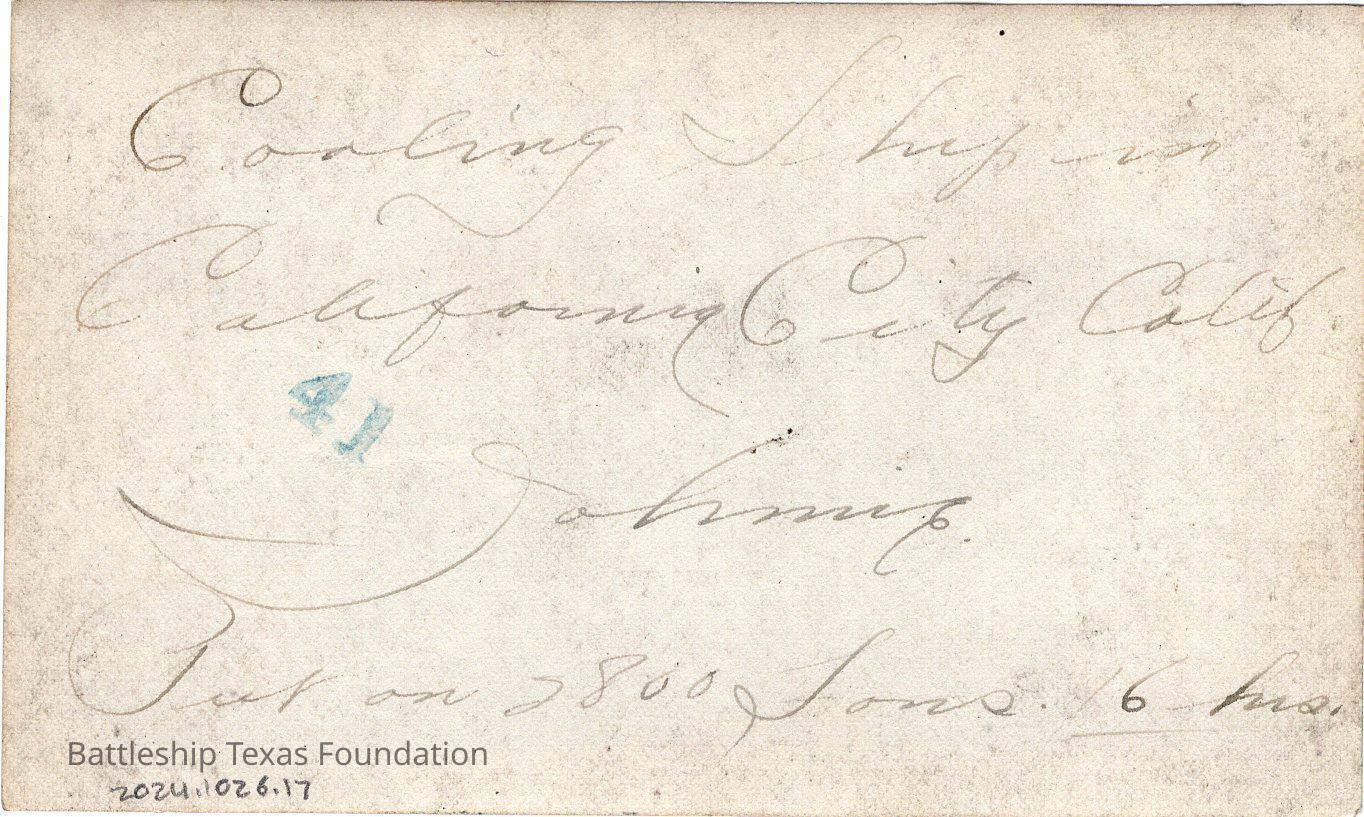 Coaling Ship in
California City Calif.
41
Johnnie.
Put on 2800 Tons. 16 hrs.
Battleship Texas Foundation
2024.1026.17